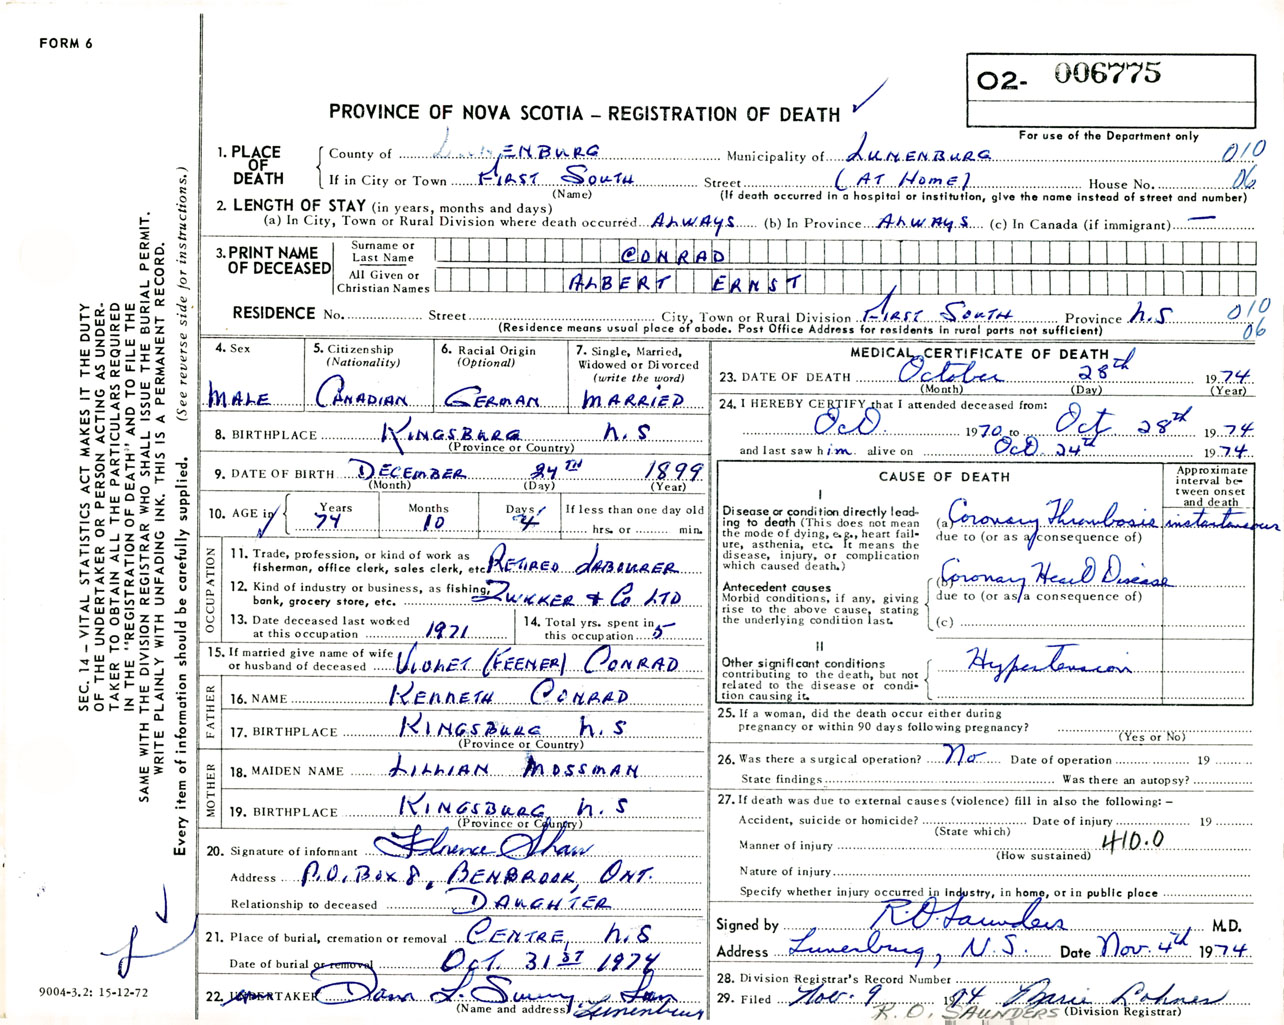 FORM 6
O2- 006775
PROVINCE OF NOVA SCOTIA – REGISTRATION OF DEATH ✓
For use of the Department only
1. PLACE OF DEATH
County of LunENBURG Municipality of LUNENBURG 010
If in City or Town FIRST SOUTH Street (AT HOME) House No. 06
(Name) (If death occurred in a hospital or institution, give the name instead of street and number)
2. LENGTH OF STAY (in years, months and days)
(a) In City, Town or Rural Division where death occurred ALWAYS (b) In Province ALWAYS (c) In Canada (if immigrant) —
3. PRINT NAME OF DECEASED
Surname or Last Name CONRAD
All Given or Christian Names ALBERT ERNST
RESIDENCE No. Street City, Town or Rural Division FIRST SOUTH Province N.S 010
(Residence means usual place of abode. Post Office Address for residents in rural parts not sufficient) 06
4. Sex MALE
5. Citizenship (Nationality) CANADIAN
6. Racial Origin (Optional) GERMAN
7. Single, Married, Widowed or Divorced (write the word) MARRIED
8. BIRTHPLACE KINGSBURG N.S
(Province or Country)
9. DATE OF BIRTH DECEMBER 24TH 1899
(Month) (Day) (Year)
10. AGE in Years 74 Months 10 Days 4 If less than one day old hrs. or min.
OCCUPATION
11. Trade, profession, or kind of work as fisherman, office clerk, sales clerk, etc RETIRED LABOURER
12. Kind of industry or business, as fishing, bank, grocery store, etc. ZWICKER & CO LTD
13. Date deceased last worked at this occupation 1971
14. Total yrs. spent in this occupation 5
15. If married give name of wife or husband of deceased VIOLET (KEENER) CONRAD
FATHER
16. NAME KENNETH CONRAD
17. BIRTHPLACE KINGSBURG N.S
(Province or Country)
MOTHER
18. MAIDEN NAME LILLIAN MOSSMAN
19. BIRTHPLACE KINGSBURG N.S
(Province or Country)
20. Signature of informant Florence Shaw
Address P.O. BOX 8, BENBROOK, ONT.
Relationship to deceased DAUGHTER
21. Place of burial, cremation or removal CENTRE, N.S
Date of burial or removal OCT. 31ST 1974
22. UNDERTAKER
(Name and address) Lunenburg
MEDICAL CERTIFICATE OF DEATH
23. DATE OF DEATH October 28th 1974
(Month) (Day) (Year)
24. I HEREBY CERTIFY that I attended deceased from:
Oct. 1970 to Oct 28th 1974
and last saw him alive on Oct. 24th 1974
CAUSE OF DEATH
Approximate interval between onset and death
I
Disease or condition directly leading to death (This does not mean the mode of dying, e.g., heart failure, asthenia, etc. It means the disease, injury, or complication which caused death.)
(a) Coronary Thrombosis instantaneous
due to (or as a consequence of)
Antecedent causes
Morbid conditions, if any, giving rise to the above cause, stating the underlying condition last.
(b) Coronary Heart Disease
due to (or as a consequence of)
(c)
II
Other significant conditions contributing to the death, but not related to the disease or condition causing it.
Hypertension
25. If a woman, did the death occur either during pregnancy or within 90 days following pregnancy?
(Yes or No)
26. Was there a surgical operation? No Date of operation 19
State findings Was there an autopsy?
27. If death was due to external causes (violence) fill in also the following: –
Accident, suicide or homicide? Date of injury 19
(State which)
Manner of injury 410.0
(How sustained)
Nature of injury
Specify whether injury occurred in industry, in home, or in public place
Signed by R.O. Saunders M.D.
Address Lunenburg, N.S. Date Nov. 4th 1974
28. Division Registrar's Record Number
29. Filed Nov. 9 1974 Marie Lohnes
R. O. SAUNDERS (Division Registrar)
SEC. 14 – VITAL STATISTICS ACT MAKES IT THE DUTY
OF THE UNDERTAKER OR PERSON ACTING AS UNDER-
TAKER TO OBTAIN ALL THE PARTICULARS REQUIRED
IN THE "REGISTRATION OF DEATH" AND TO FILE THE
SAME WITH THE DIVISION REGISTRAR WHO SHALL ISSUE THE BURIAL PERMIT.
WRITE PLAINLY WITH UNFADING INK. THIS IS A PERMANENT RECORD.
Every item of information should be carefully supplied. (See reverse side for instructions.)
9004-3.2: 15-12-72